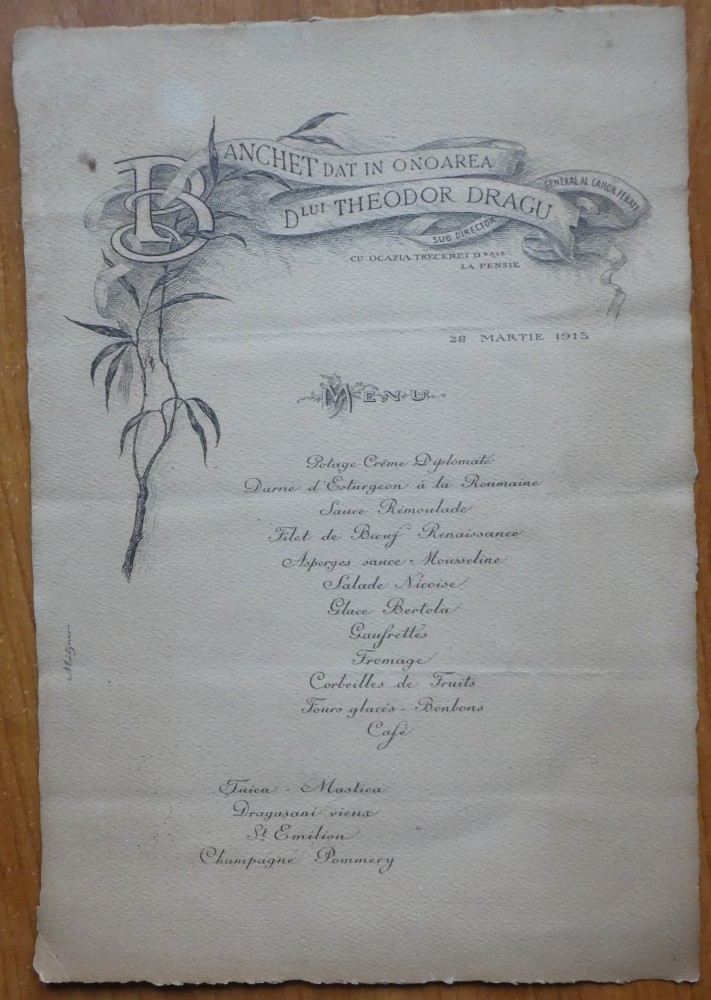 BANCHET DAT IN ONOAREA
DLUI THEODOR DRAGU
SUB DIRECTOR GENERAL AL CAILOR FERATE
CU OCAZIA TRECEREI DSALE
LA PENSIE
28 MARTIE 1915
MENU
Potage Crême Diplomate
Darne d'Esturgeon à la Roumaine
Sauce Rémoulade
Filet de Bœuf Renaissance
Asperges sauce Mousseline
Salade Niçoise
Glace Bertola
Gaufrettes
Fromage
Corbeilles de Fruits
Fours glacés - Bonbons
Café
Tuica - Mastica
Dragasani vieux
St Emilion
Champagne Pommery